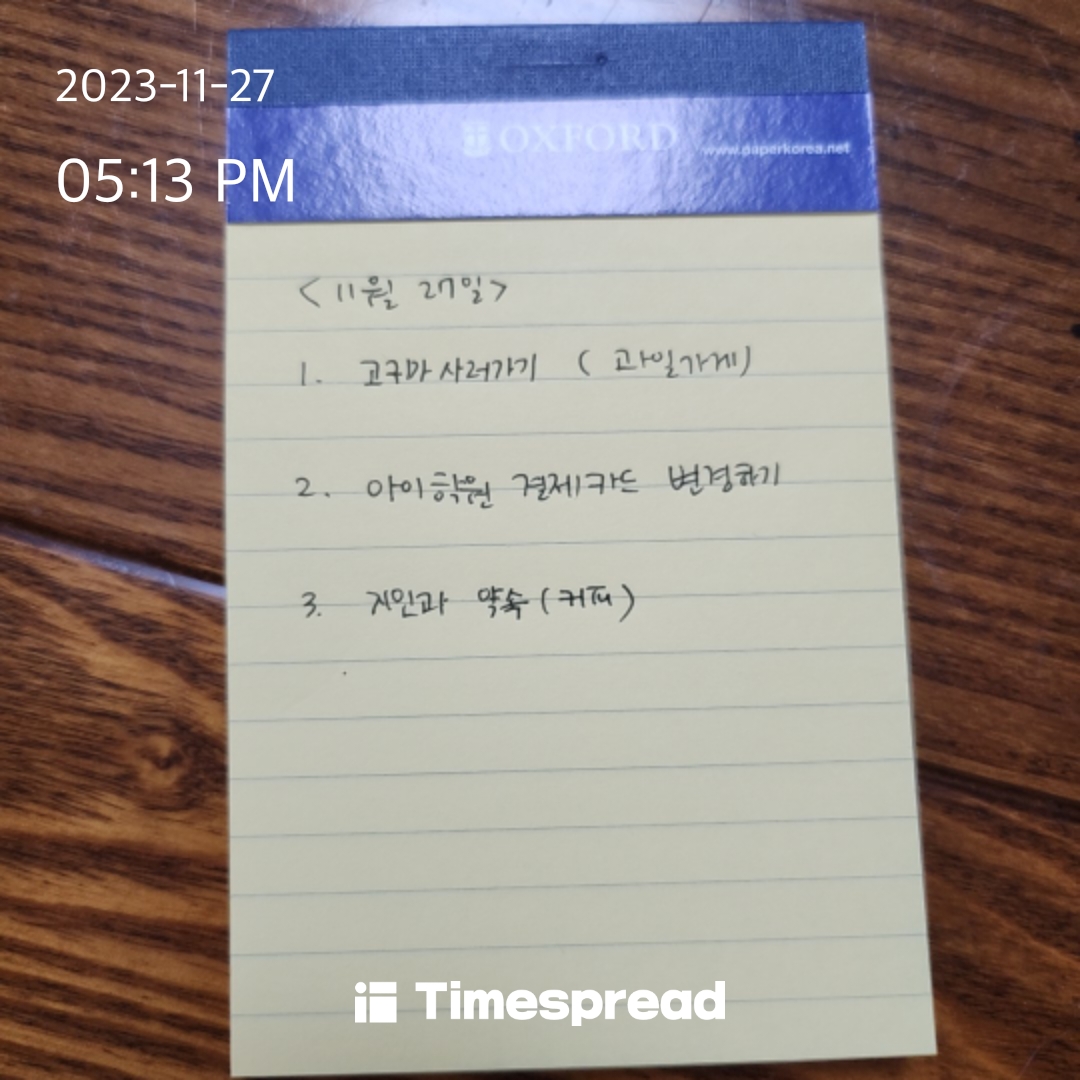 2023-11-27
05:13 PM
OXFORD
www.paperkorea.net
< 11월 27일 >
1. 고구마 사러가기 ( 과일가게)
2. 아이학원 결제카드 변경하기
3. 지인과 약속 (커피)
Timespread